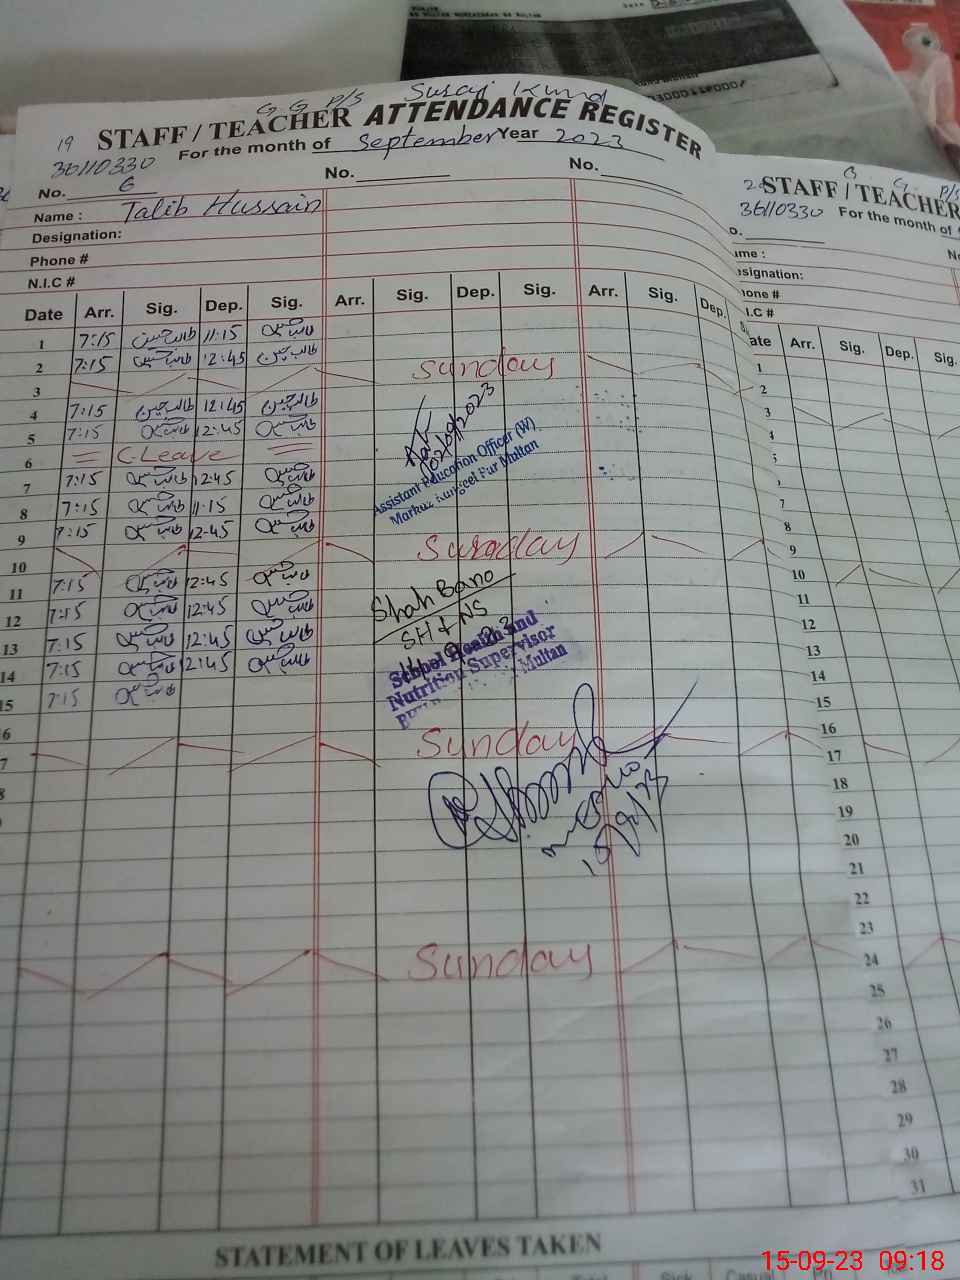 G.G. P/S Suraj Kund
19 STAFF / TEACHER ATTENDANCE REGISTER
36110330 For the month of September Year 2023
No. 6 No. No.
Name : Talib Hussain
Designation:
Phone #
N.I.C #
Date Arr. Sig. Dep. Sig. Arr. Sig. Dep. Sig. Arr. Sig. Dep.
1 7:15 طالب حسین 11:15 طالب حسین
2 7:15 طالب حسین 12:45 طالب حسین
3 Sunday
4 7:15 طالب حسین 12:45 طالب حسین
5 7:15 طالب حسین 12:45 طالب حسین
6 = C.Leave =
7 7:15 طالب حسین 12:45 طالب حسین
8 7:15 طالب حسین 11:15 طالب حسین
9 7:15 طالب حسین 12:45 طالب حسین
10 Sunday
11 7:15 طالب حسین 12:45 طالب حسین
12 7:15 طالب حسین 12:45 طالب حسین
13 7:15 طالب حسین 12:45 طالب حسین
14 7:15 طالب حسین 12:45 طالب حسین
15 7:15 طالب حسین
16
17 Sunday
Sunday
02/09/2023
Assistant Education Officer (W)
Markaz Pur Multan
Shah Bano
SH & NS
School Health and
Nutrition Supervisor
Multan
STATEMENT OF LEAVES TAKEN
STAFF / TEACHER
36110330 For the month of
Arr. Sig. Dep. Sig.
1
2
3
8
9
10
11
12
13
14
15
16
17
18
19
20
21
22
23
24
25
26
27
28
29
30
31
15-09-23 09:18